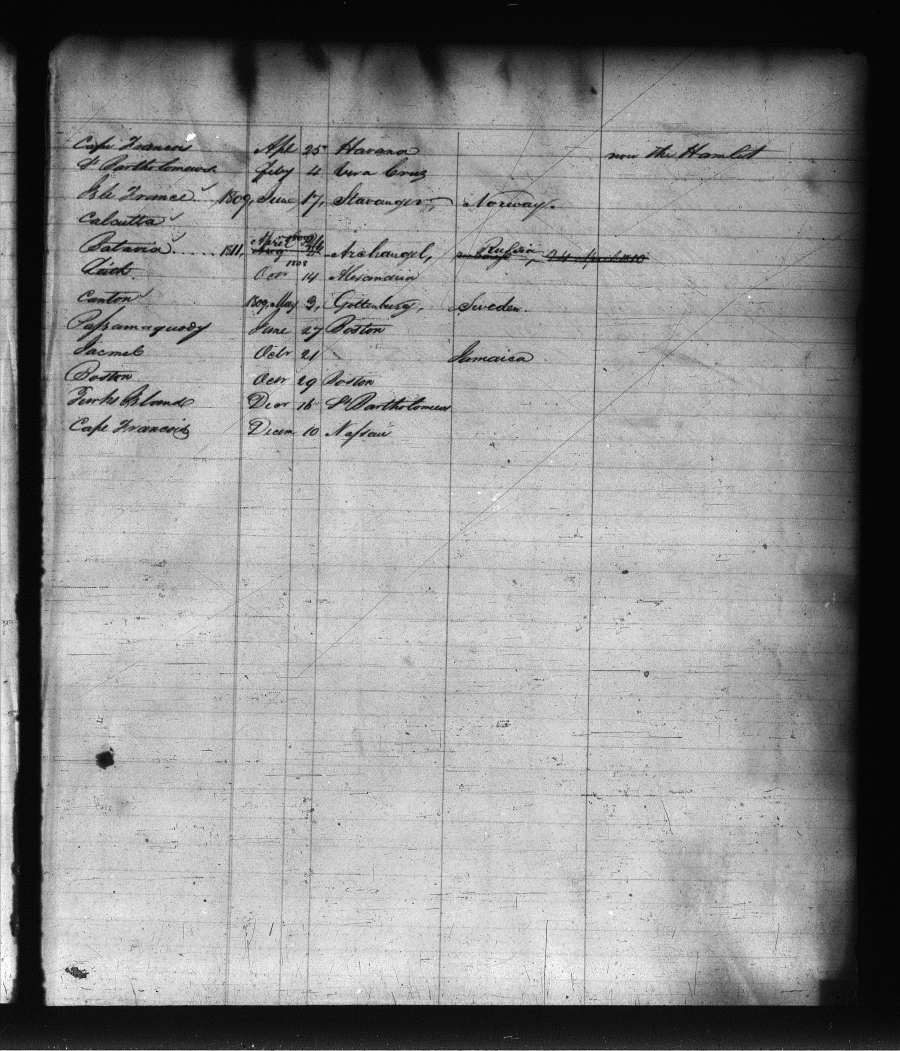 Cape Francois Apl 25 Havana now the Hamlet
St Bartholomews Feby 4 Vera Cruz
Isle France 1809, June 17, Stavanger, Norway.
Calcutta
Batavia 1811, April 24 Archangel, Russia, 24 April 1810
Leith 1808 Octr 14 Alexandria
Canton 1809, May 3, Gottenburg, Sweden.
Passamaquody June 27 Boston
Jacmel Octr 21 Jamaica
Boston Octr 29 Boston
Turks Island Decr 16 St Bartholomews
Cape Francois Decem 10 Nassau